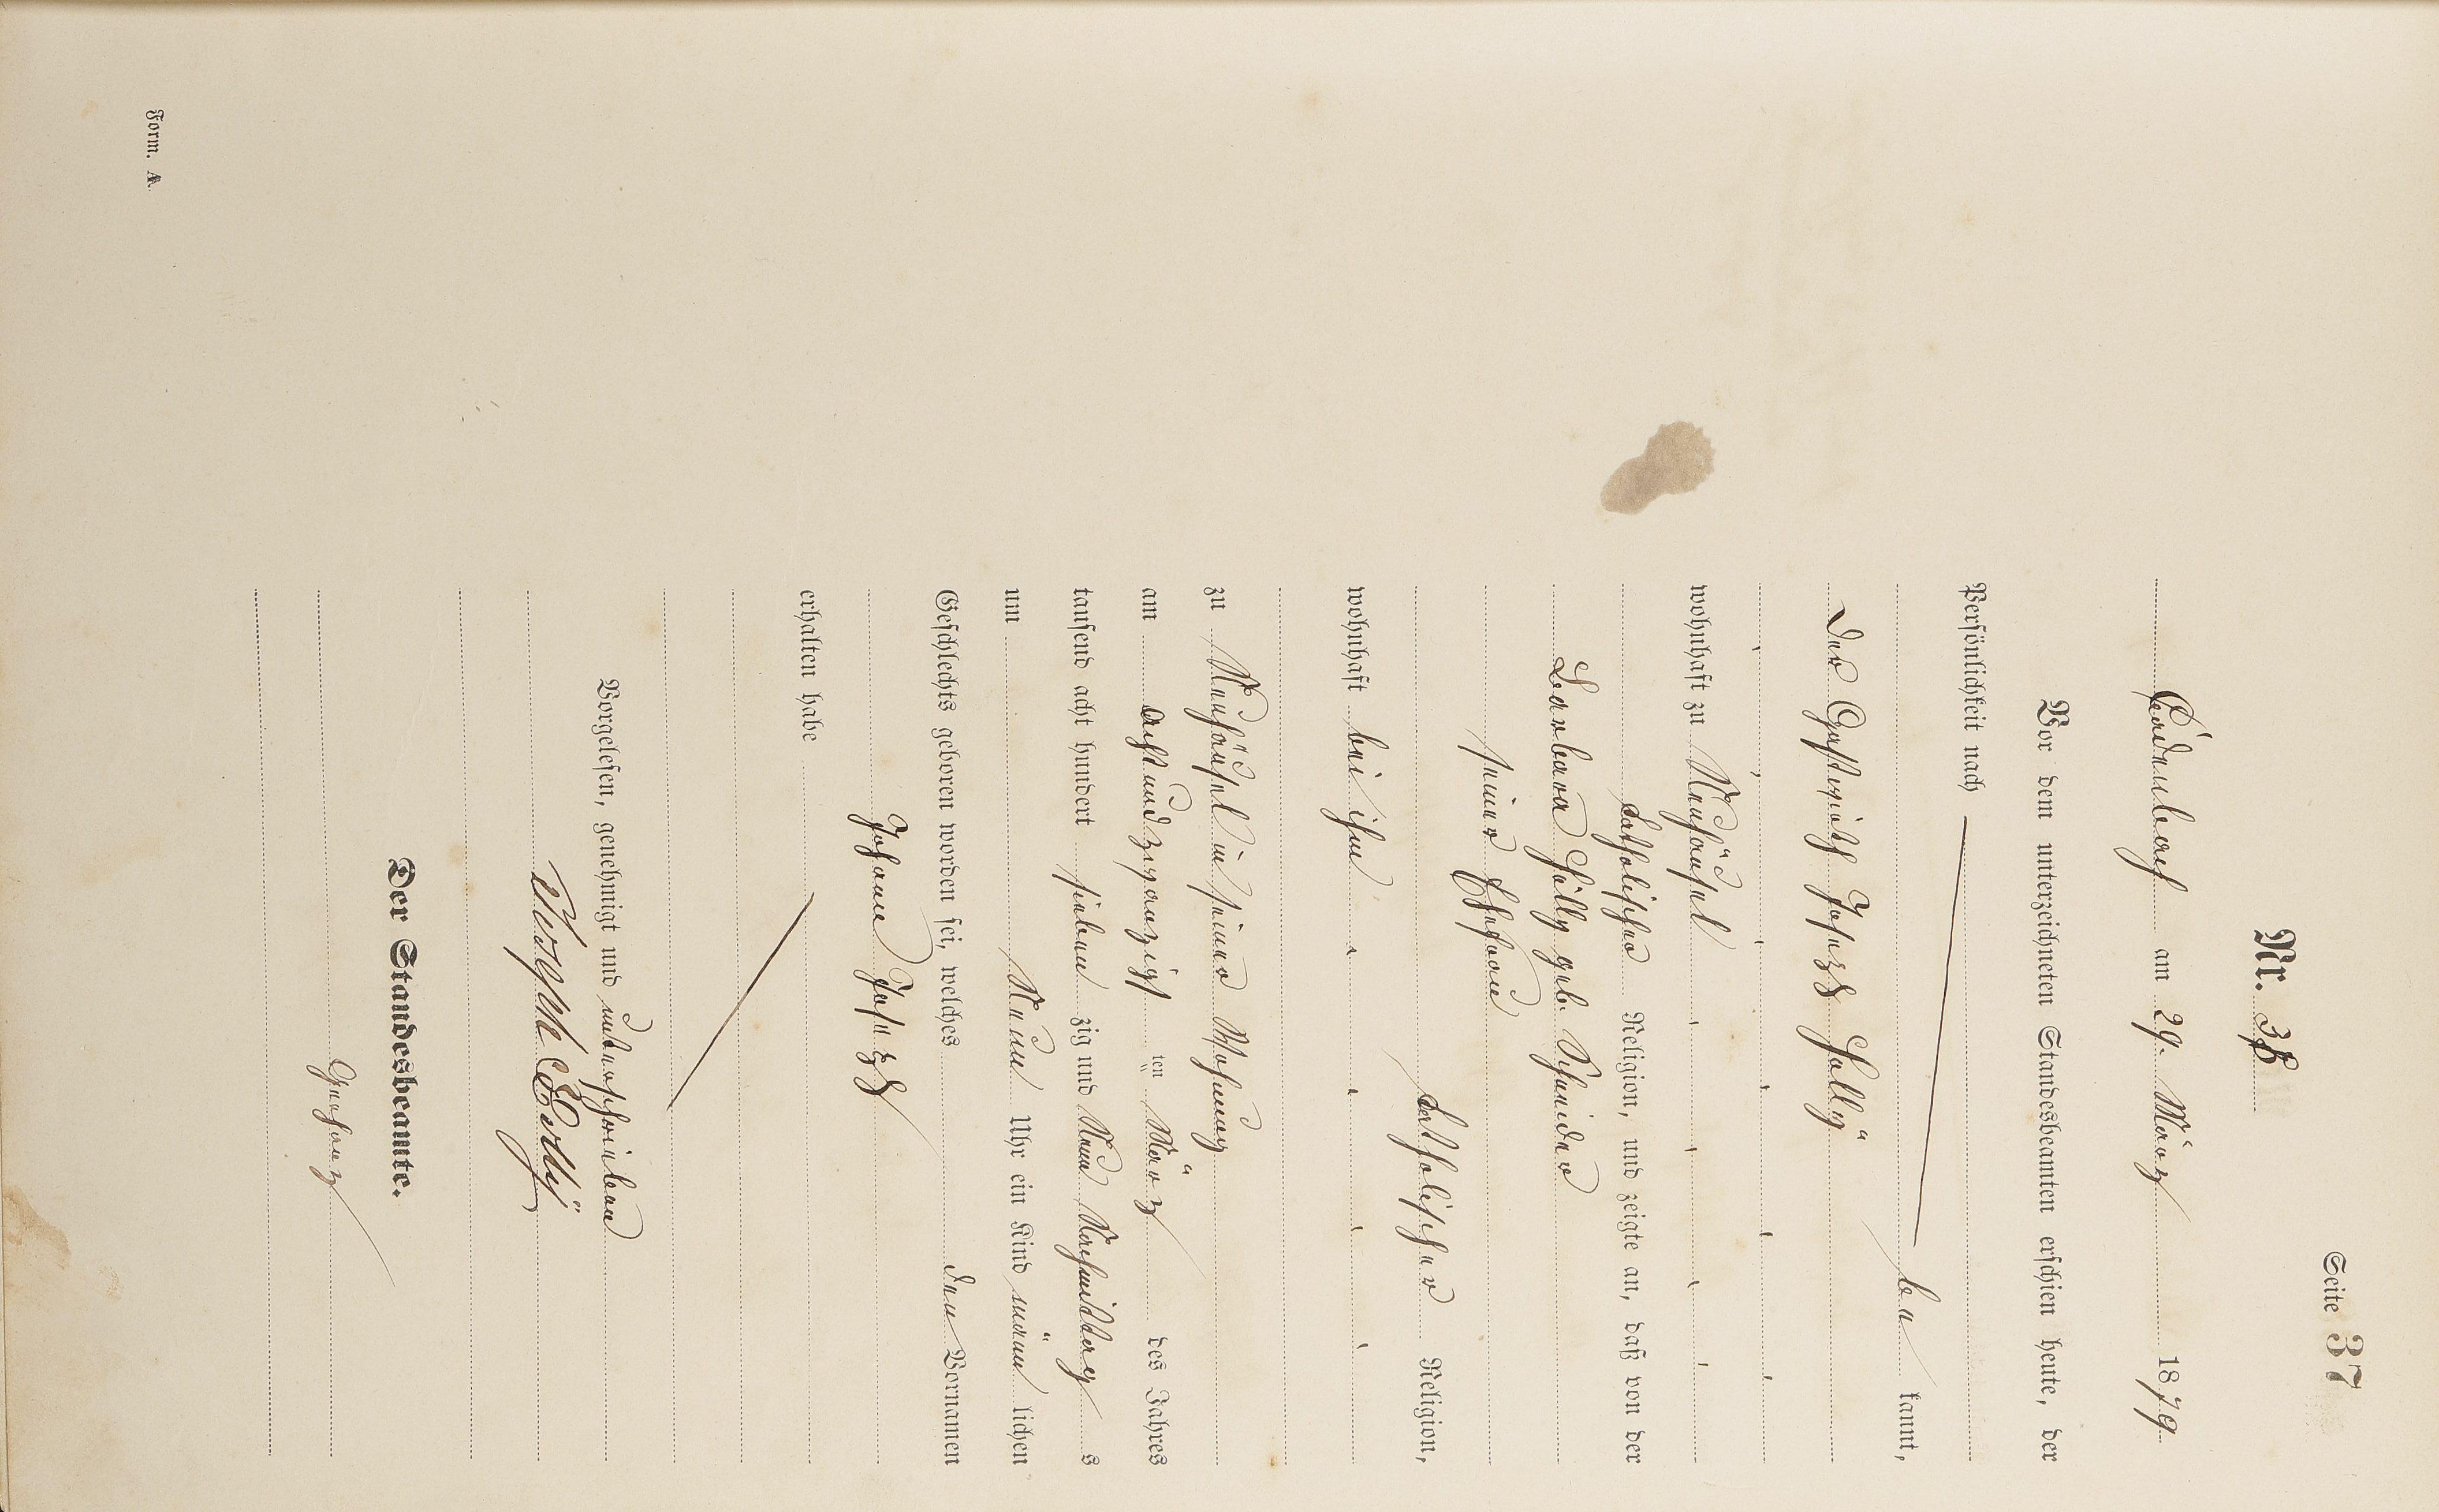 Seite 37
Nr. 38
Ladenbach am 29. März 1879
Vor dem unterzeichneten Standesbeamten erschien heute, der
Persönlichkeit nach
be kannt,
Der Gastwirth Josef Hölly
wohnhaft zu Neuhäusel
katholischer Religion, und zeigte an, daß von der
Barbara Hölly geb. Schneider
seiner Ehefrau
katholischer Religion,
wohnhaft bei ihm
zu Neuhäusel in seiner Wohnung
am Acht und zwanzigst ten März des Jahres
tausend acht hundert sieben zig und Neun Nachmittag s
um Neun Uhr ein Kind män lichen
Geschlechts geboren worden sei, welches den Vornamen
Johann Josef
erhalten habe
Vorgelesen, genehmigt und unterschrieben
Der Standesbeamte.
Form. A.